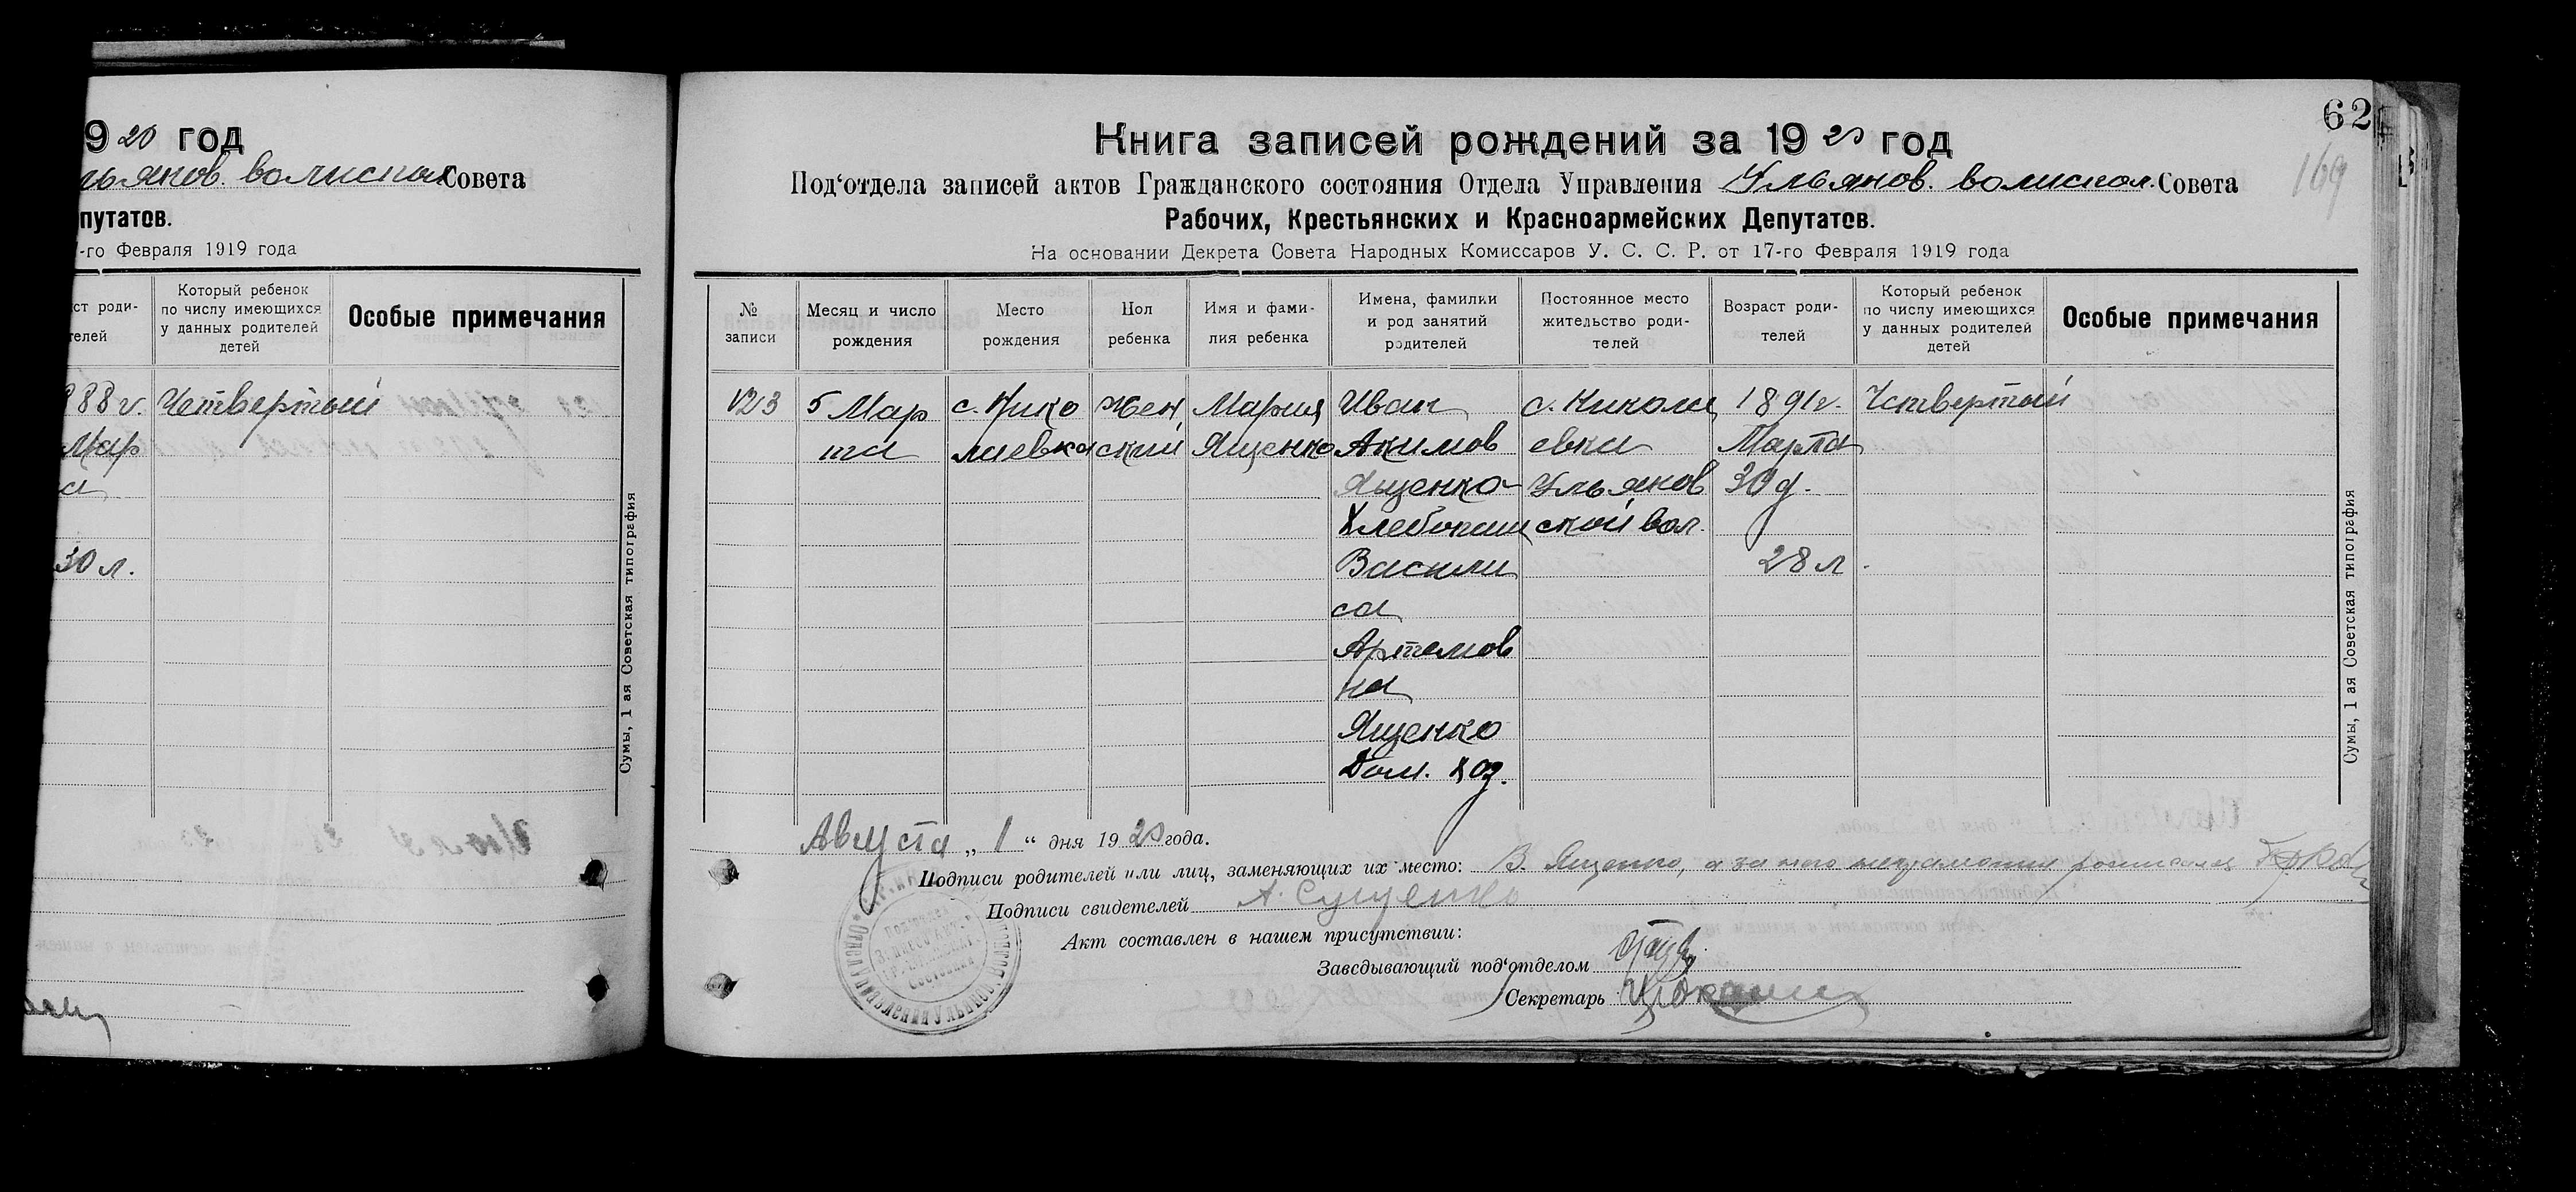 920 год
льянов. волисных Совета
путатов.
-го Февраля 1919 года
ст роди-
телей
Который ребенок
по числу имеющихся
у данных родителей
детей
Особые примечания
888 г. Четвертый
Мар
а
30 л.
Сумы, 1 ая Советская типография
62
169
Книга записей рождений за 1920 год
Под‘отдела записей актов Гражданского состояния Отдела Управления Ульянов. волиспол. Совета
Рабочих, Крестьянских и Красноармейских Депутатов.
На основании Декрета Совета Народных Комиссаров У. С. С. Р. от 17-го Февраля 1919 года
№
записи
Месяц и число
рождения
Место
рождения
Пол
ребенка
Имя и фами-
лия ребенка
Имена, фамилии
и род занятий
родителей
Постоянное место
жительство роди-
телей
Возраст роди-
телей
Который ребенок
по числу имеющихся
у данных родителей
детей
Особые примечания
123
5 Мар
та
с. Нико
лаевка
Жен
ский
Мария
Ященко
Иван
Акимов
Ященко
Хлебопаш
Васили
са
Артемов
на
Ященко
Дом. хоз.
с. Никола
евка
Ульянов
ской вол.
1891 г.
Марта
30 д.
28 л.
Четвертый
Сумы, 1 ая Советская типография
Августа „ 1 “ дня 1920 года.
Подписи родителей или лиц, заменяющих их место: В. Ященко, а за него неграмотн росписался
Подписи свидетелей А. Сущенко
Акт составлен в нашем присутствии:
Заведывающий под‘отделом
Секретарь